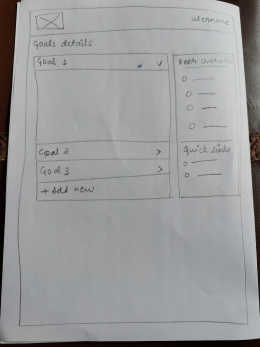 username
Goals details
Goal 1
Goal 2
Goal 3
+ Add new
Quick links